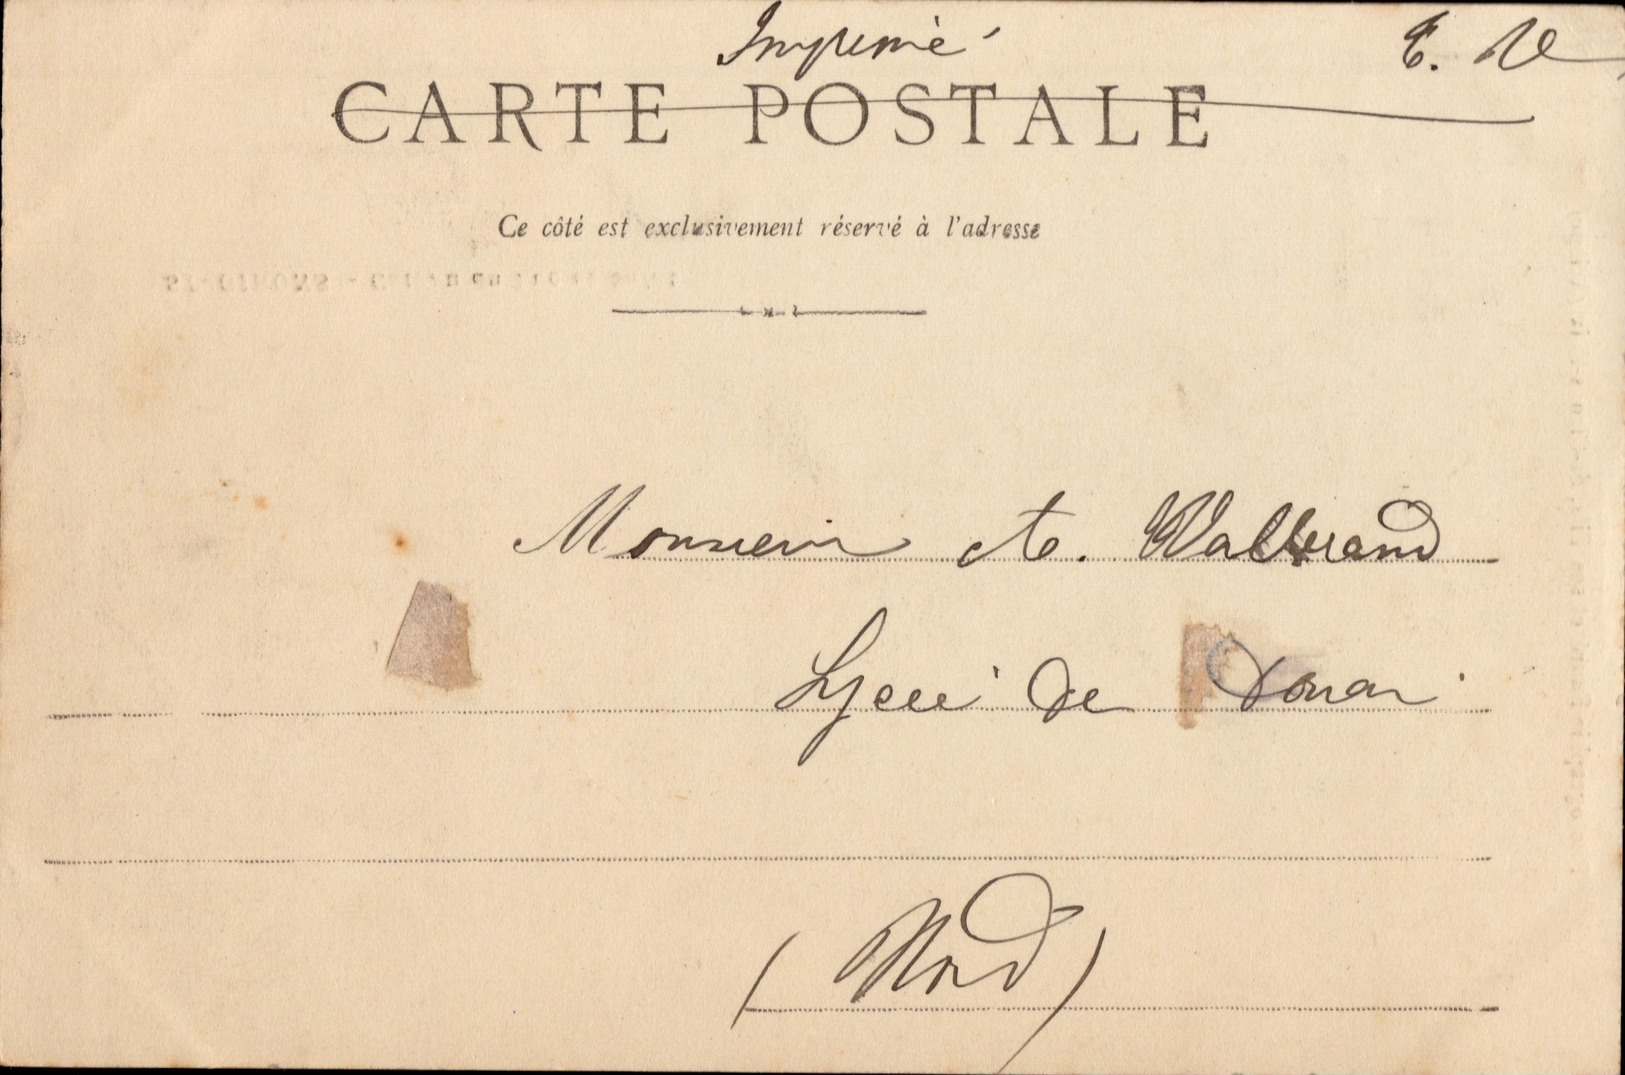 Imprimé
E. V
CARTE POSTALE
Ce côté est exclusivement réservé à l'adresse
Monsieur A. Walbrand
Lycée de Douai
(Nord)